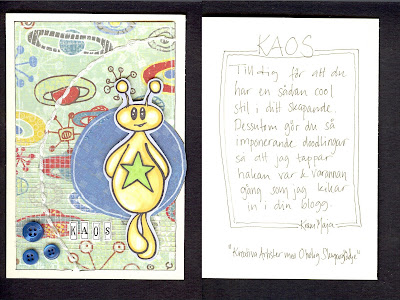 KAOS
KAOS
Till dig för att du
har en sådan cool
stil i ditt skapande.
Dessutom gör du så
imponerande doodlingar
så att jag tappar
hakan var & varannan
gång som jag kikar
in i din blogg.
Maja
"Kreativa Artister med